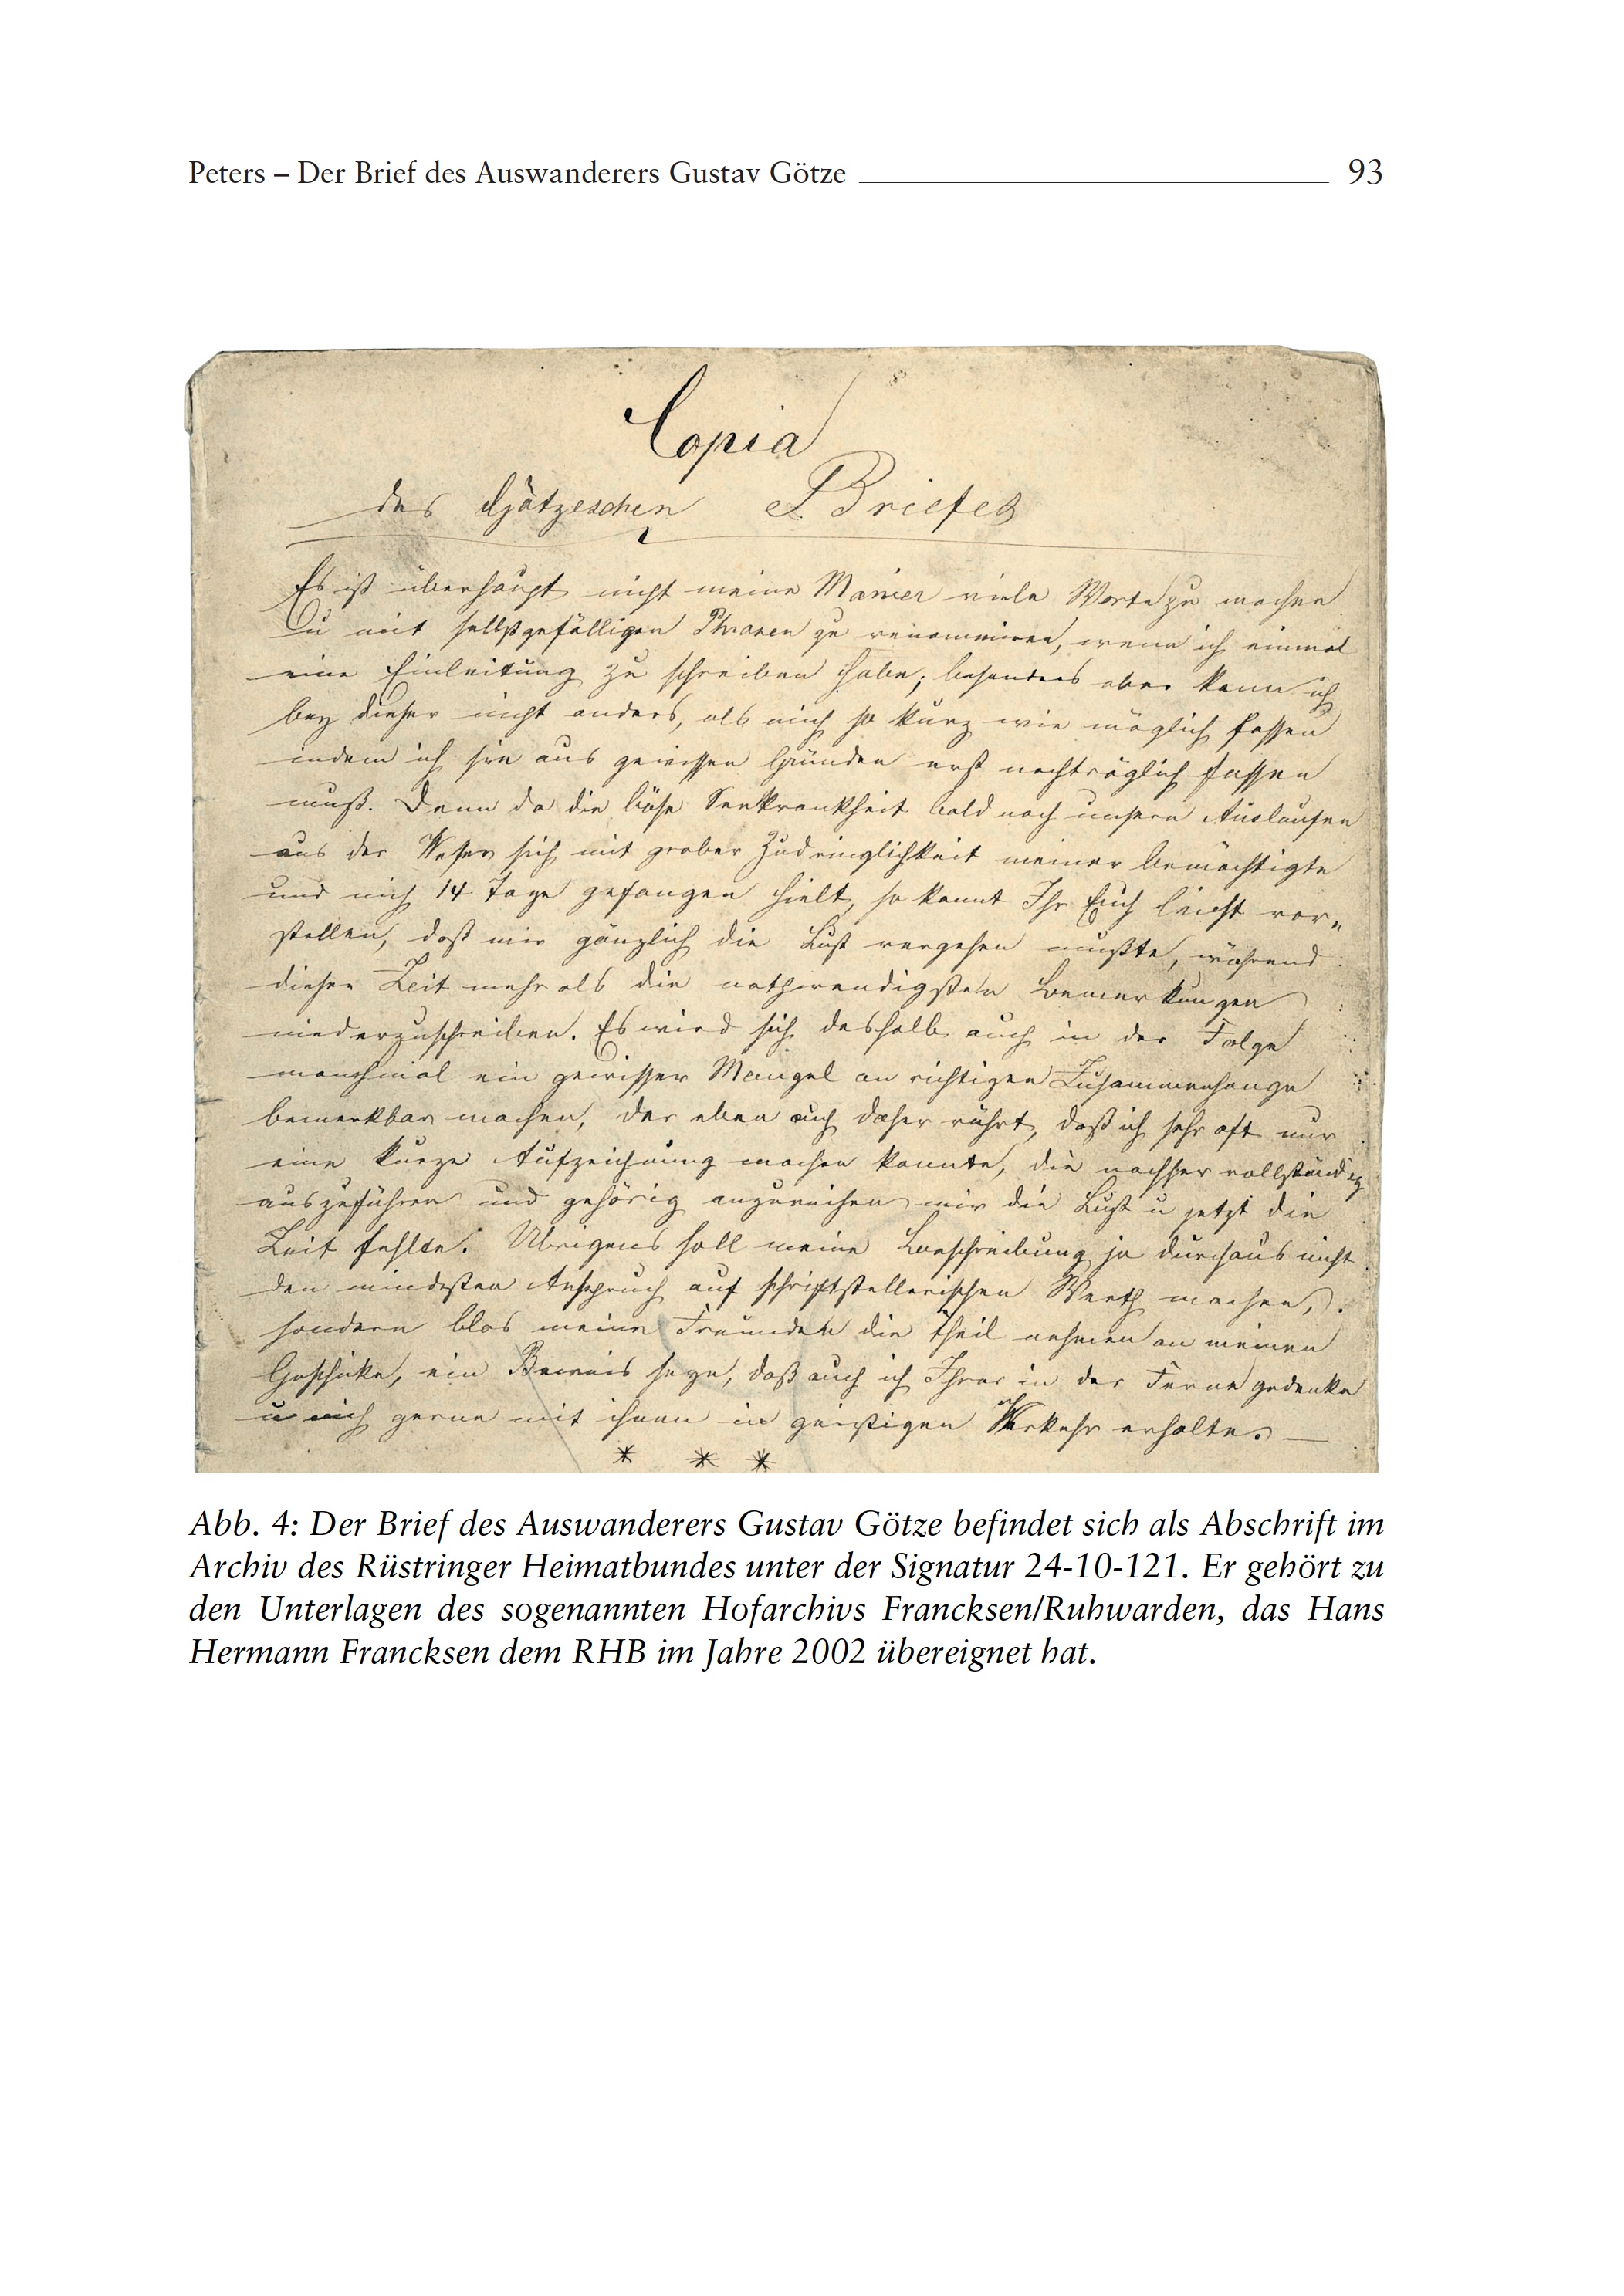 Peters – Der Brief des Auswanderers Gustav Götze 93
Copia
des Götzeschen Briefes
Es ist überhaupt nicht meine Manier viele Worte zu machen
mit selbstgefälligen Phrasen zu renommiren, wenn ich einmal
eine Einleitung zu schreiben habe; besonders aber kann ich
bey dieser nicht anders, als mich so kurz wie möglich fassen
indem ich sie aus gewissen Gründen erst nachträglich fassen
muß. Denn da die böse Seekrankheit bald nach unsern Auslaufen
aus der Weser sich mit grober Zudringlichkeit meiner bemächtigte
und mich 14 Tage gefangen hielt, so könnt Ihr Euch leicht vor„
stellen, daß mir gänzlich die Lust vergehen mußte, während
dieser Zeit mehr als die nothwendigsten Bemerkungen
niederzuschreiben. Es wird sich deshalb auch in der Folge
manchmal ein gewisser Mangel an richtigen Zusammenhange
bemerkbar machen, der eben auch daher rührt, daß ich sehr oft nur
eine kurze Aufzeichnung machen konnte, die nachher vollständig
auszuführen und gehörig anzureihen mir die Lust u jetzt die
Zeit fehlte. Übrigens soll meine Beschreibung ja durchaus nicht
den mindesten Anspruch auf schriftstellerischen Werth machen,
sondern blos meine Freunden die theil nehmen an meinen
Geschicke, ein Beweis seyn, daß auch ich Ihrer in der Ferne gedenke
u mich gerne mit ihnen in geistigen Verkehr erhalte. —
* * *
Abb. 4: Der Brief des Auswanderers Gustav Götze befindet sich als Abschrift im
Archiv des Rüstringer Heimatbundes unter der Signatur 24-10-121. Er gehört zu
den Unterlagen des sogenannten Hofarchivs Francksen/Ruhwarden, das Hans
Hermann Francksen dem RHB im Jahre 2002 übereignet hat.